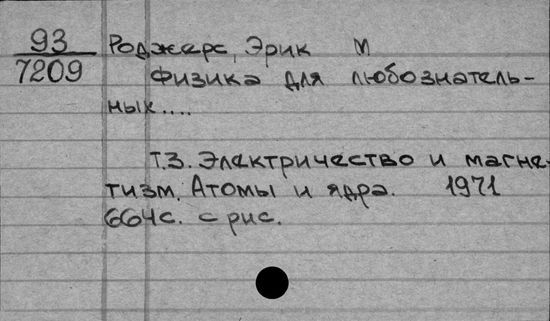 93 Роджерс, Эрик М
7209 Физика для любознатель-
ных....
Т.3. Электричество и магне-
тизм. Атомы и ядра. 1971
664с. с рис.